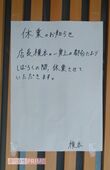 休業のお知らせ
店長榎本の一身上の都合により
しばらくの間、休業させて
いただきます。
榎本
PRIME